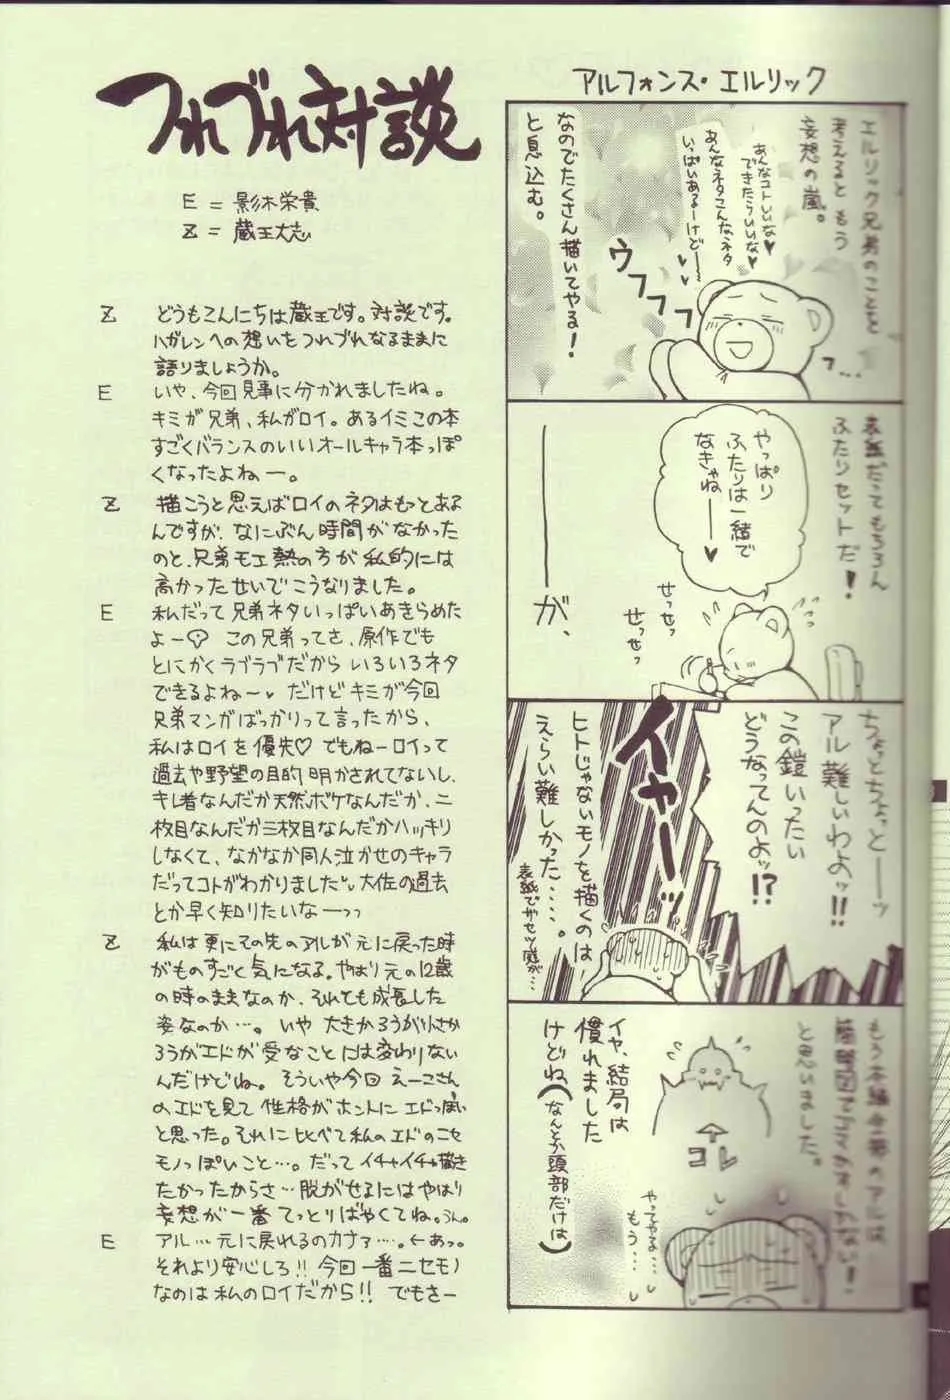 つれづれ対談
E = 影木栄貴
Z = 蔵王大志
Z どうもこんにちは蔵王です。対談です。
ハガレンへの想いをつれづれなるままに
語りましょうか。
E いや、今回見事に分かれましたね。
キミが兄弟、私がロイ。あるイミこの本
すごくバランスのいいオールキャラ本っぽ
くなったよねー。
Z 描こうと思えばロイのネタはもっとある
んですが、なにぶん時間がなかった
のと、兄弟モエ熱の方が私的には
高かったせいでこうなりました。
E 私だって兄弟ネタいっぱいあきらめた
よー この兄弟ってさ、原作でも
とにかくラブラブだからいろいろネタ
できるよねー♥ だけどキミが今回
兄弟マンガばっかりって言ったから、
私はロイを優先♡ でもねーロイって
過去や野望の目的明かされてないし、
キレ者なんだか天然ボケなんだか、二
枚目なんだか三枚目なんだかハッキリ
しなくて、なかなか同人泣かせのキャラ
だってコトがわかりました 大佐の過去
とか早く知りたいなーっっ
Z 私は更にその先のアルが元に戻った時
がものすごく気になる。やはり元の12歳
の時のままなのか、それとも成長した
姿なのか…。いや大きかろうが小さか
ろうがエドが受なことには変わりない
んだけどね。そういや今回えーこさん
のエドを見て性格がホントにエドっぽい
と思った。それに比べて私のエドのニセ
モノっぽいこと…。だってイチャイチャ描き
たかったからさ…脱がせるにはやはり
妄想が一番てっとりばやくてね。うん。
E アル…元に戻れるのカナァ…。←あっ。
それより安心しろ!!今回一番ニセモノ
なのは私のロイだから!!でもさー
アルフォンス・エルリック
エルリック兄弟のことを
考えるともう
妄想の嵐。
あんなコトいいな♥
できたらいいな♥
あんなネタこんなネタ
いっぱいあるーけどー
なのでたくさん描いてやる!
と息込む。
ウフフフフ
フ…
表紙だってもちろん
ふたりセットだ!
やっぱり
ふたりは一緒で
なきゃねー♥
せっせっ
せっせっ
――が、
ちょっとちょっとーッ
アル難しいわよッ!!
この鎧いったい
どうなってんのよッ!?
イヤーッ
ヒトじゃないモノを描くのは
えらい難しかった…。
もう本編全部のアルは
と思いました。
コレ
イヤ、結局は
慣れました
けどね(なんとか頭部だけは)
やってやる…
もう…